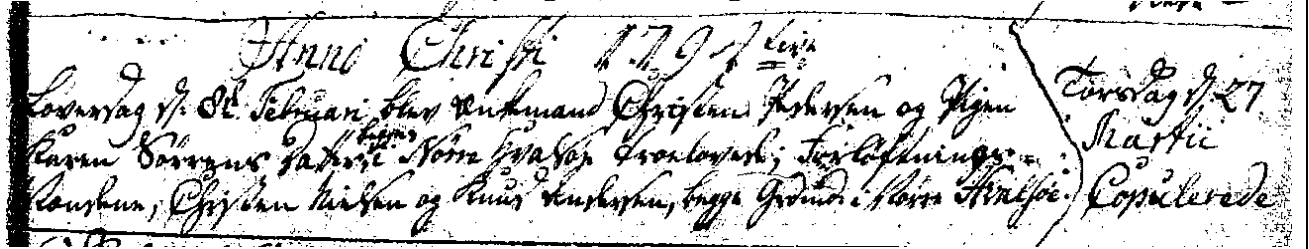 Anno Christi 1794
Løverdag d. 8de Februari blev Enkemand Christen Pedersen og Pigen
Karen Sørrens Datter i Nørre Hvalsøe Troelovede; Forløftnings-
Mændene, Christen Nielsen og Knud Andersen, begge Grdmd i Nørre Hvalsøe.
Torsdag d. 27
Martii
Copulerede